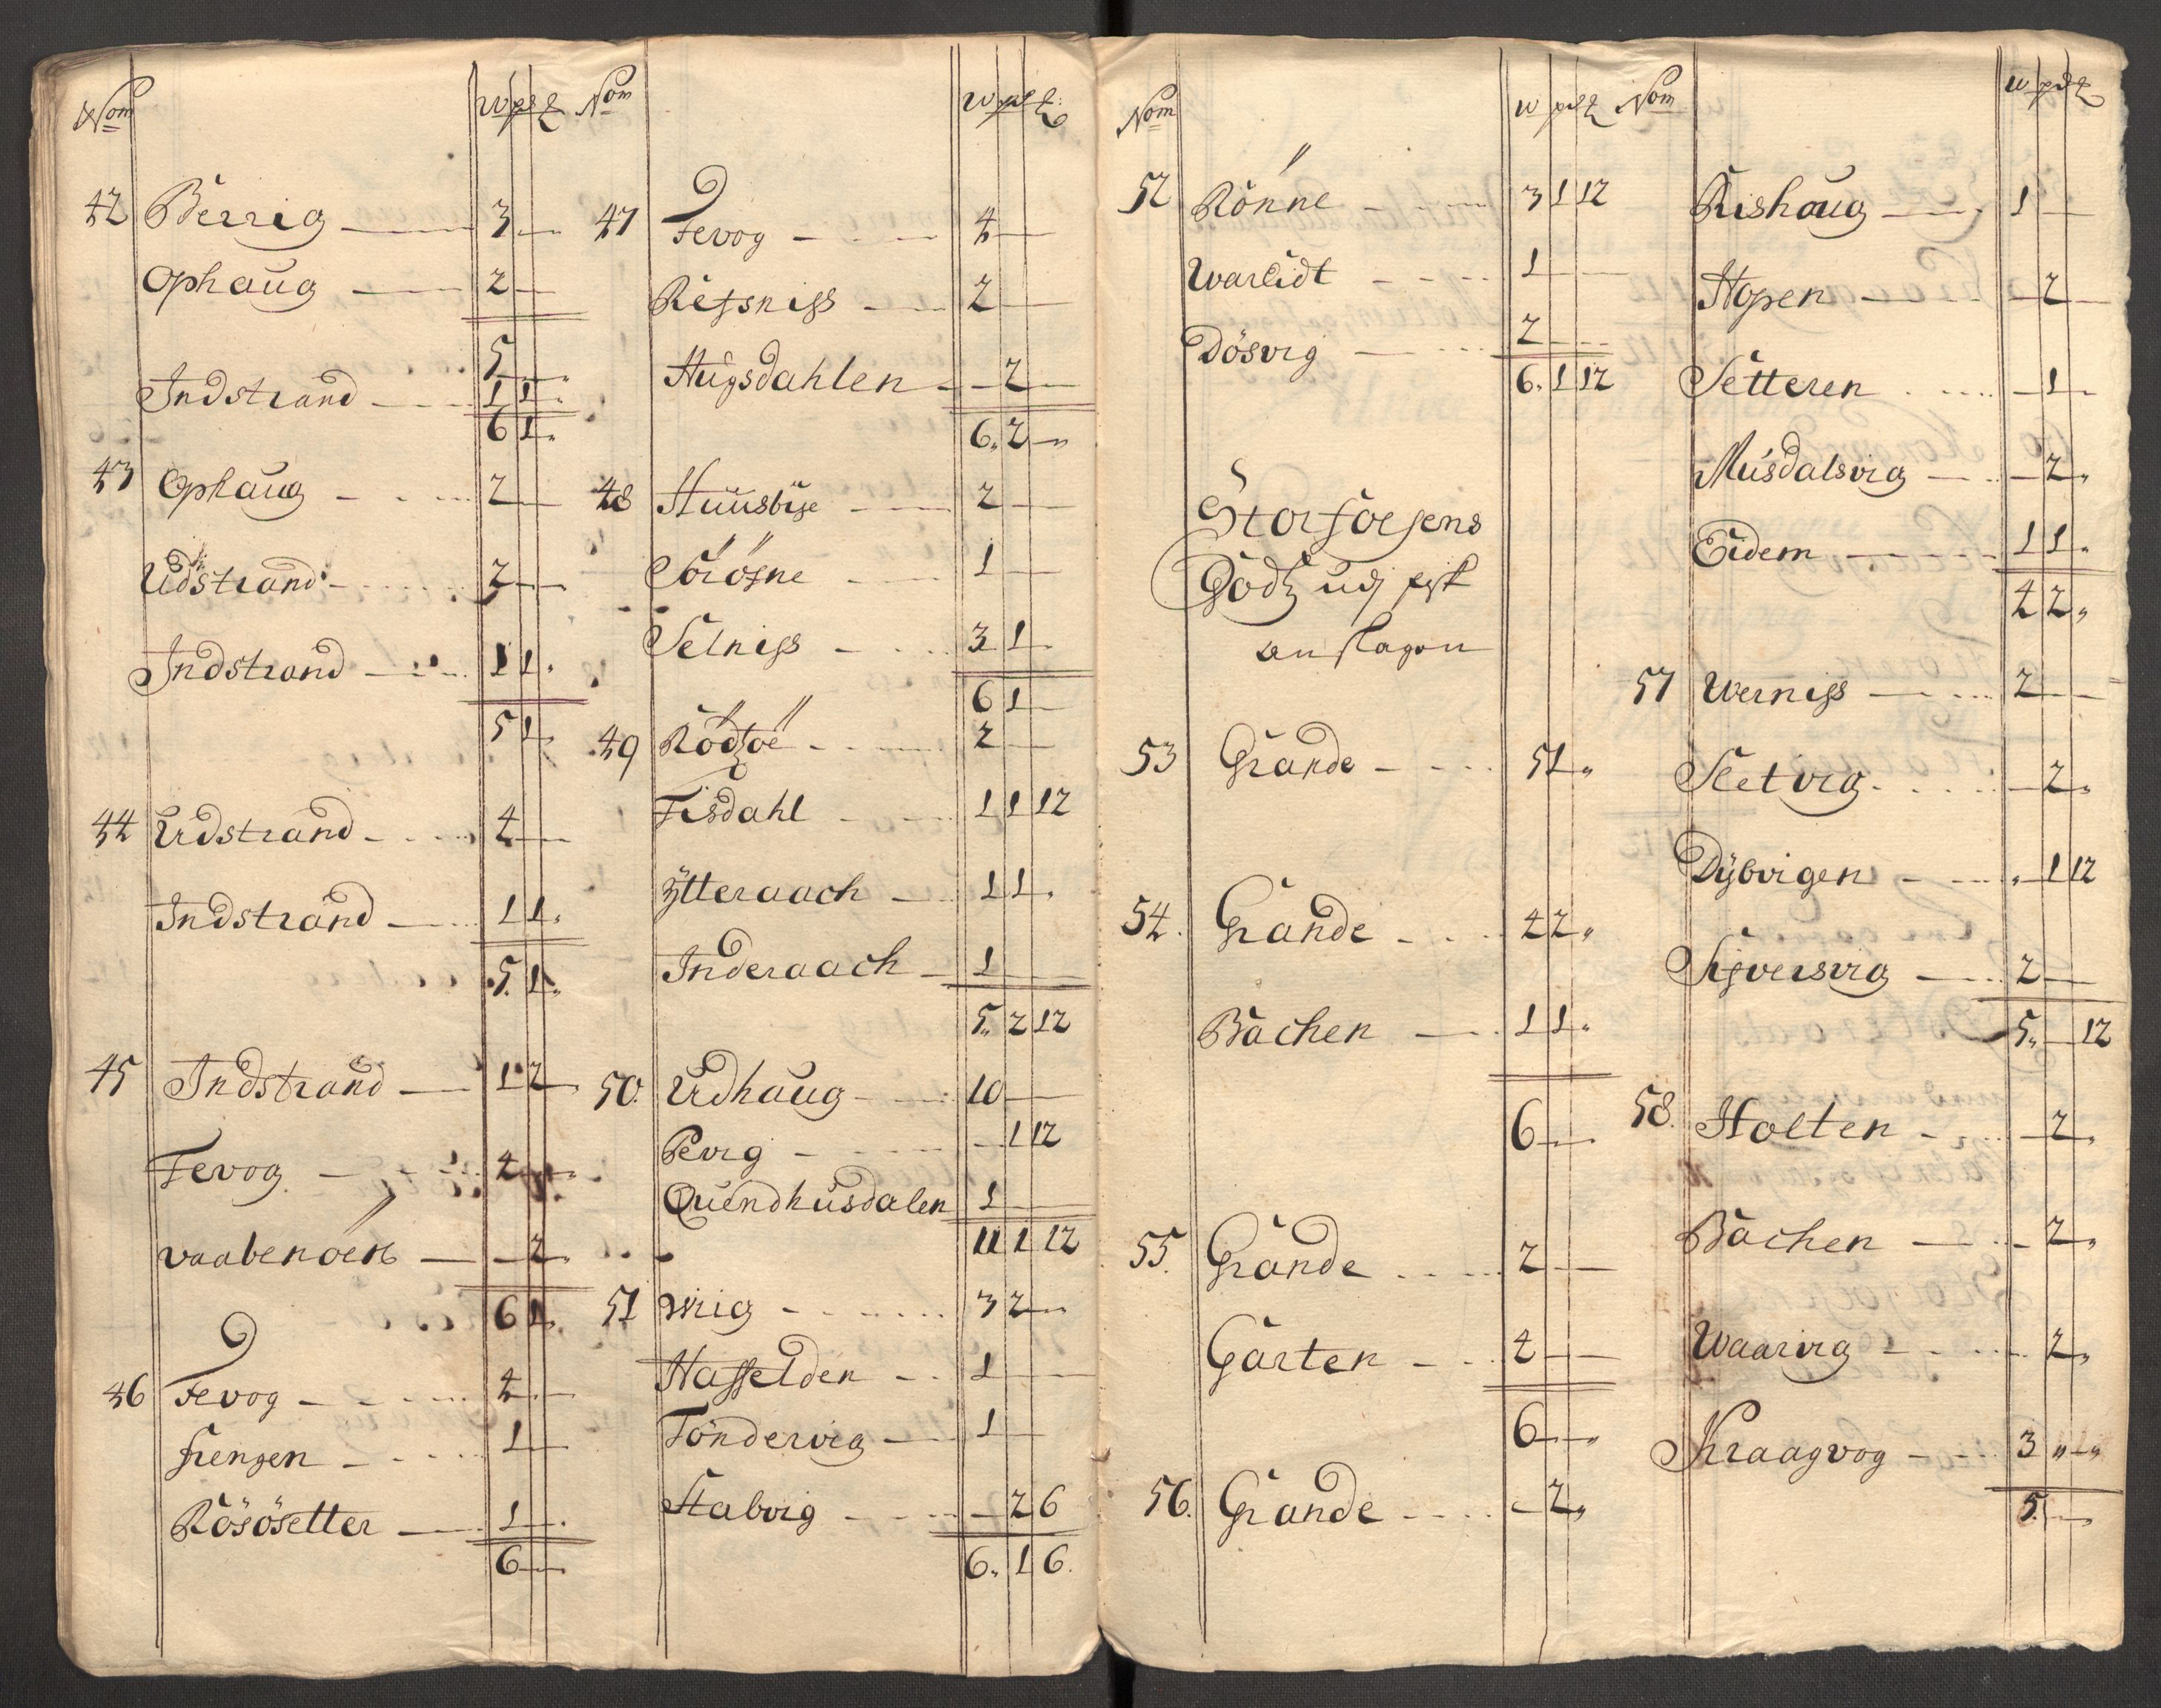 Nom W pd ℔
42 Berrig 3
Ophaug 2
5
Indstrand 1 1
6 1
43 Ophaug 2
Udstrand 2
Indstrand 1 1
5 1
44 Udstrand 4
Indstrand 1 1
5 1
45 Indstrand 1 2
Fevog 4
vaabenöen 2
6 1
46 Fevog 4
frengen 1
Rösösetter 1
6
Nom W pd ℔
47 Fevog 4
Refsniss 2
Hugsdahlen 2
6 2
48 Huusbye 2
Sörösne 1
Selniss 3 1
6 1
49 Rödsöe 2
Fisdahl 1 1 12
Ytteraach 1 1
Inderaach 1
5 2 12
50 Udhaug 10
Pevig 1 12
Quendhusdalen 1
11 1 12
51 Wrig 3 2
Hasselden 1
Tøndervig 1
Stabvig 2 6
6 1 6
Nom W pd ℔
52 Rönne 3 1 12
Warlidt 1
Dösvig 2
6 1 12
Storfosens
Godtz udj
53 Grande 5 1
54 Grande 4 2
Bachen 1 1
6
55 Grande 2
Garten 4
6
56 Grande 2
Nom W pd ℔
Rishaug 1
Hopen 2
Setteren 1
Musdalsvig 2
Eidem 1 1
4 2
57 Werniss 2
Sletvig 2
Dybvigen 1 12
Sifversvig 2
5 12
58 Holten 2
Bachen 2
Waarvig 2
Kraagvog 3
5